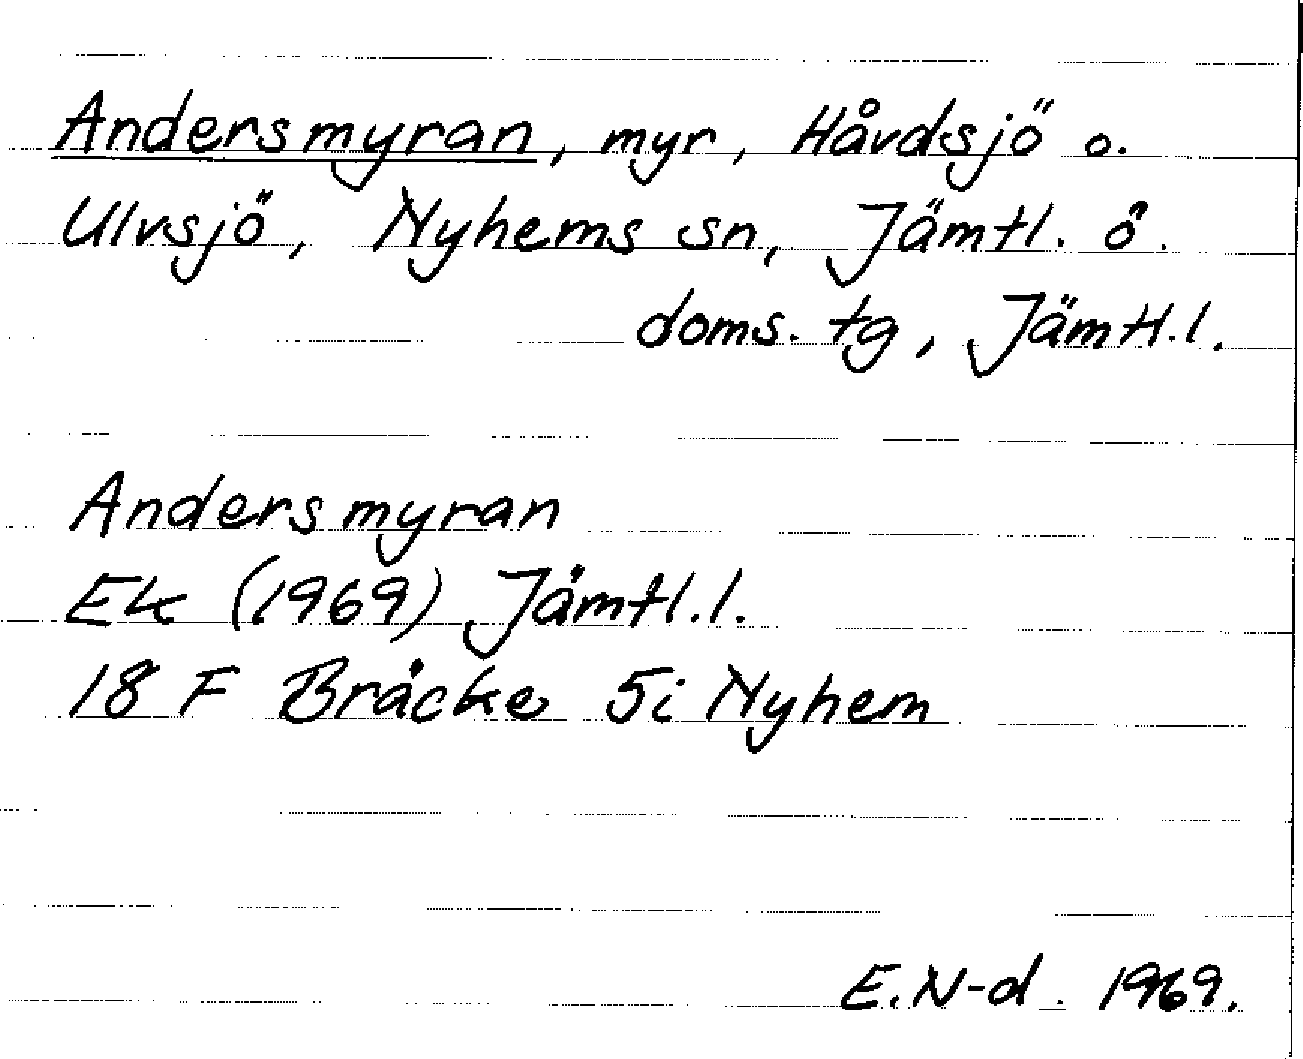 Andersmyran, myr, Håvdsjö o.
Ulvsjö, Nyhems sn, Jämtl. ö.
doms. tg, Jämtl.l.
Andersmyran
Ek (1969) Jämtl.l.
18 F Bräcke 5i Nyhem
E.N-d. 1969.